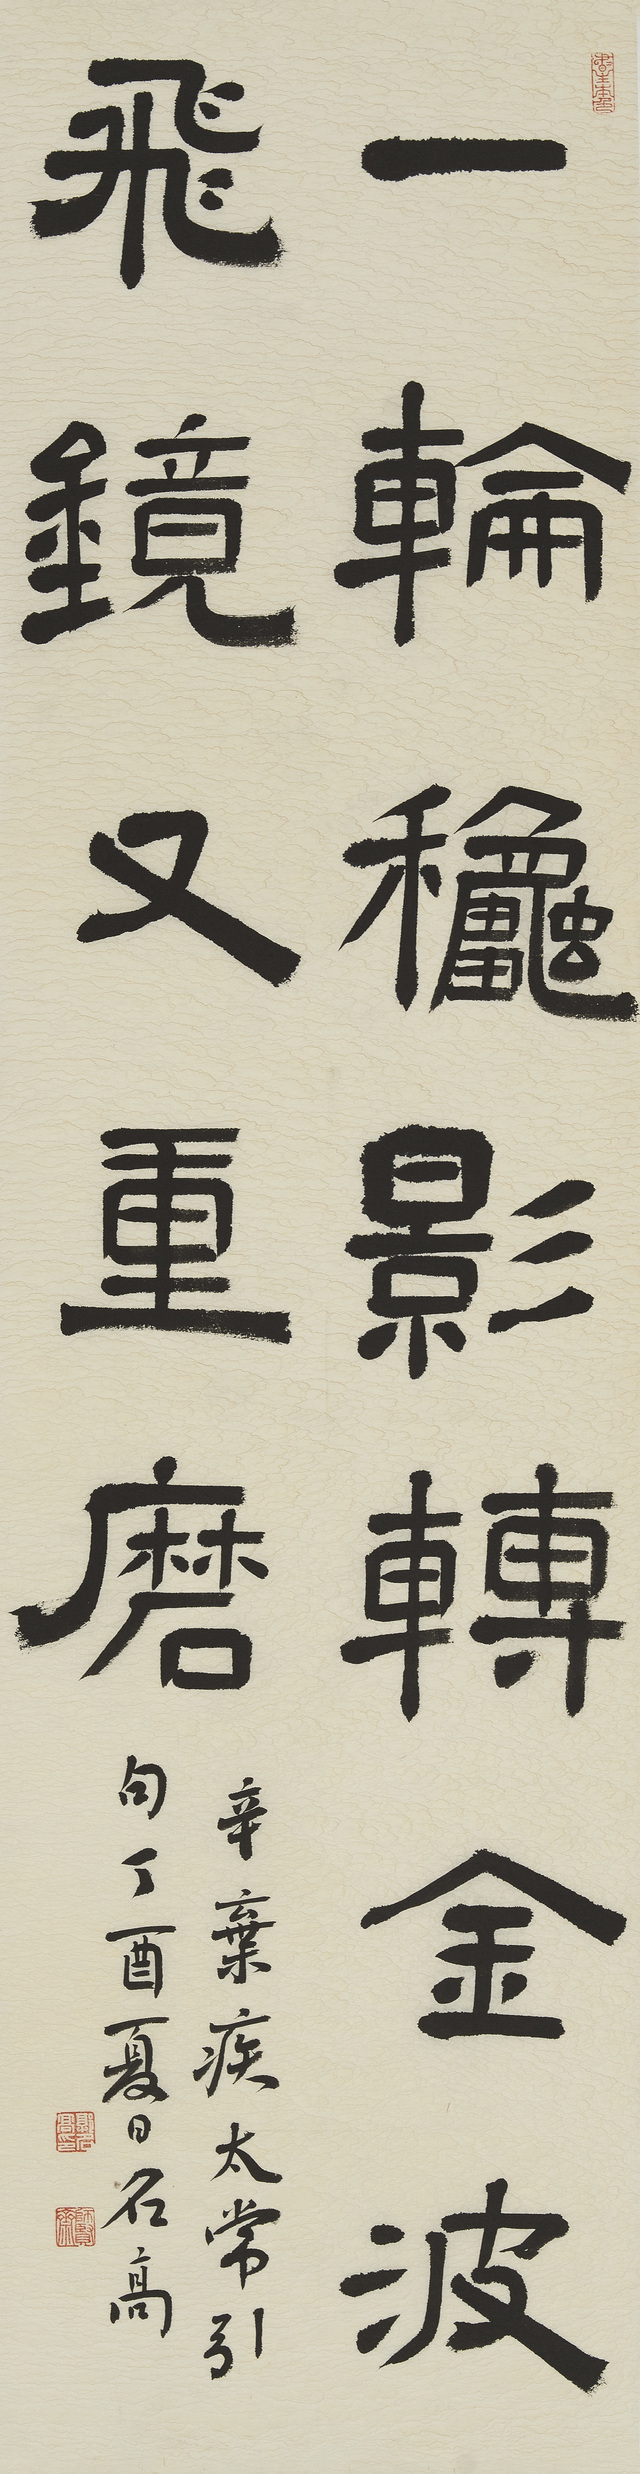 一輪龝影轉金波
飛鏡又重磨
辛棄疾太常引
句丁酉夏日石高